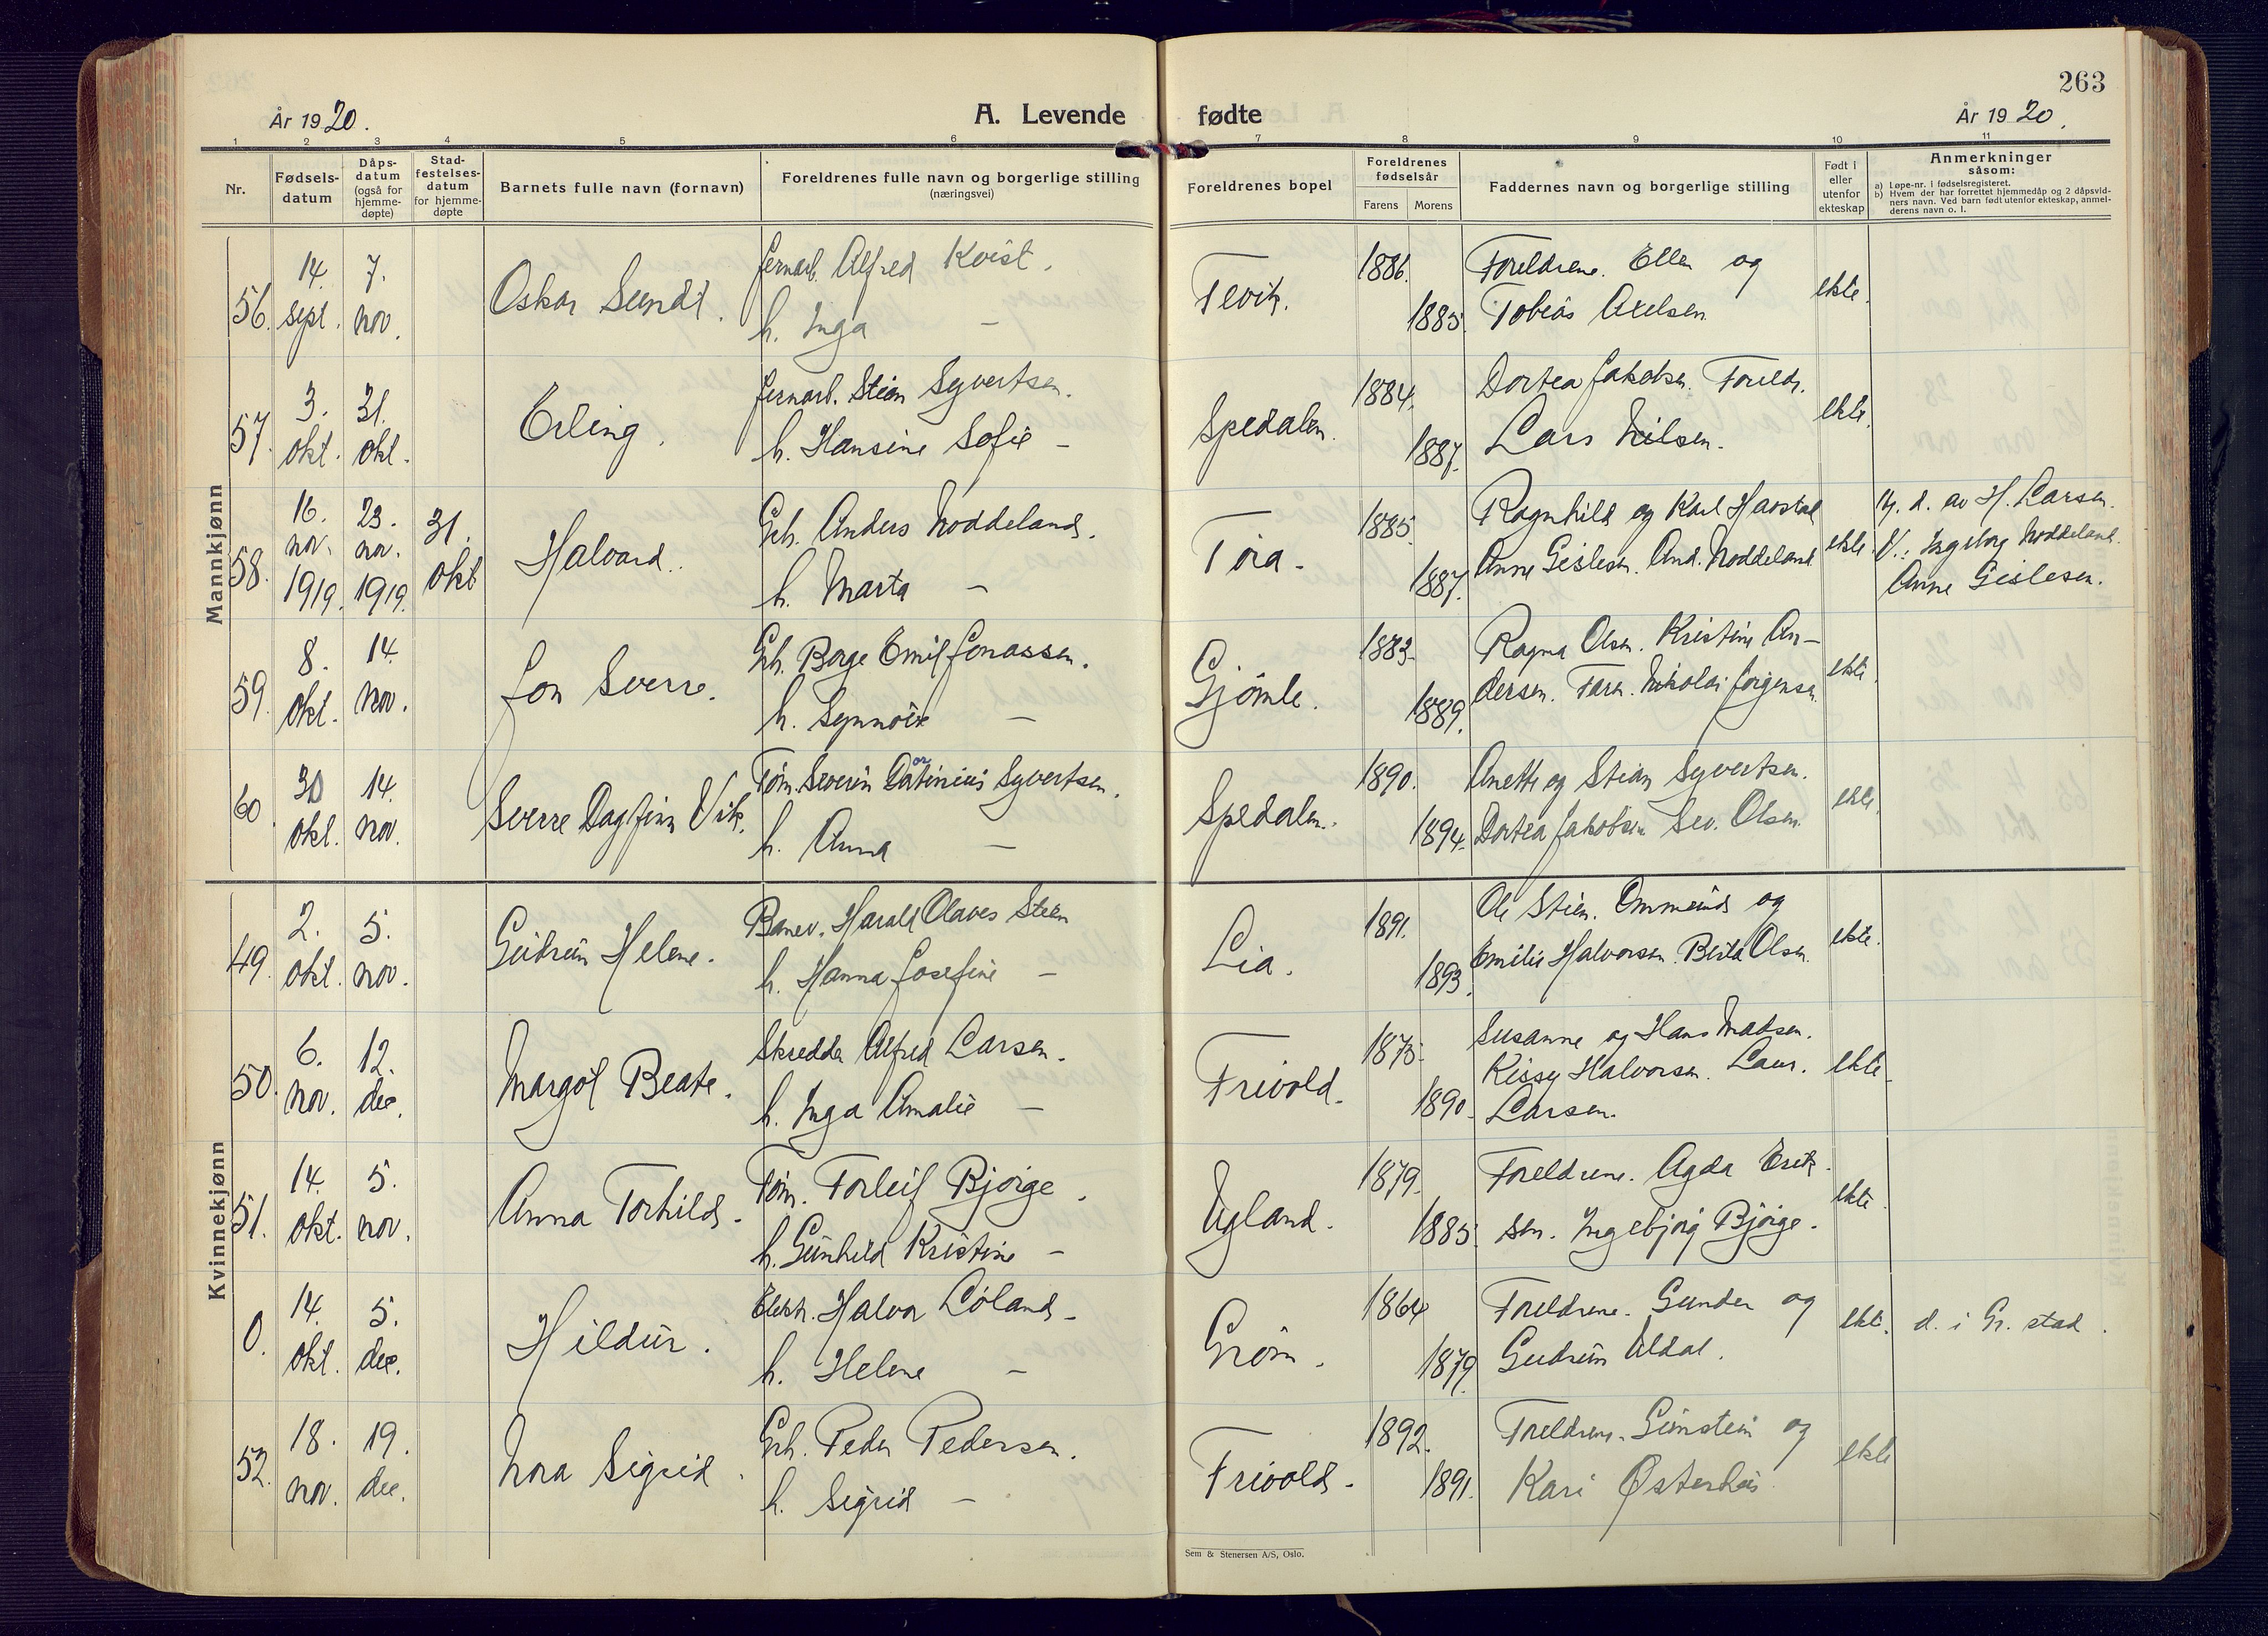 263
År 1920.
A. Levende fødte
År 1920.
1 2 3 4 5 6 7 8 9 10 11
Nr.
Fødsels-
datum
Dåps-
datum
(også for
hjemme-
døpte)
Stad-
festelses-
datum
for hjemme-
døpte
Barnets fulle navn (fornavn)
Foreldrenes fulle navn og borgerlige stilling
(næringsvei)
Foreldrenes bopel
Foreldrenes
fødselsår
Farens Morens
Faddernes navn og borgerlige stilling
Født i
eller
utenfor
ekteskap
Anmerkninger
såsom:
a) Løpe-nr. i fødselsregisteret.
b) Hvem der har forrettet hjemmedåp og 2 dåpsvid-
ners navn. Ved barn født utenfor ekteskap, anmel-
derens navn o. l.
Mannkjønn
56. 14. sept. 7. nov. Oskar Sundt.
Jernarb. Alfred Kvist.
h. Inga —
Fevik. 1886. 1885.
Foreldrene. Ellen og
Tobias Axelsen.
ekte.
57. 3. okt. 31. okt. Erling.
Jernarb. Stian Syvertsen.
h. Hansine Sofie —
Spedalen. 1884. 1887.
Dortea Jakobsen. Foreldr.
Lars Nilsen.
ekte.
58. 16. nov. 1919. 23. nov. 1919. 31. okt Halvard.
Grb. Anders Noddeland.
h. Marta —
Tøra. 1885. 1887.
Ragnhild og Karl Havstad
Anne Gislesen. And. Noddeland
ekte.
Hj. d. av H. Larsen.
V.: Ingeborg Noddeland.
Anne Gislesen.
59. 8. okt. 14. nov. Jon Sverre.
Grb. Borge Emil Jonassen.
h. Synnøve —
Gjømle. 1883. 1889.
Ragna Olsen. Kristine An-
dersen. Faren. Nikolai Jørgensen.
ekte.
60. 30 okt. 14. nov. Sverre Dagfinn Vik.
Tøm. Severin Syvertsen.
h. Anna —
Spedalen. 1890. 1894.
Anette og Stian Syvertsen.
Dortea Jakobsen Sev. Olsen.
ekte.
Kvinnekjønn
49. 2. okt. 5. nov. Gudrun Helene.
Banev. Harald Olaves Stien
h. Hanna Josefine —
Lia. 1891. 1893.
Ole Stien. Ommund og
Emilie Halvorsen. Berta Olsen.
ekte.
50. 6. nov. 12. des. Margot Beate.
Skredder Alfred Larsen.
h. Inga Amalie —
Frivold. 1875. 1890.
Susanne og Hans Madsen.
Kissy Halvorsen. Laur.
Larsen.
ekte.
51. 14. okt. 5. nov. Anna Torhild.
Tøm. Torleif Bjørge.
h. Gunhild Kristine —
Ugland. 1879. 1885.
Foreldrene. Agda Erik-
sen. Ingebjørg Bjørge.
ekte.
0. 14. okt. 5. des. Hildur.
Elektr. Halvor Løland.
h. Helene —
Grøm. 1864 1879.
Foreldrene. Gunder og
Gudrun Uldal.
ekte.
d. i Gr. stad.
52. 18. nov. 19. des. Nora Sigrid.
Grb. Peder Pedersen.
h. Sigrid —
Frivold. 1892. 1891.
Foreldrene. Gunstein og
Kari Østerhus.
ekte
Sem & Stenersen A/S, Oslo.